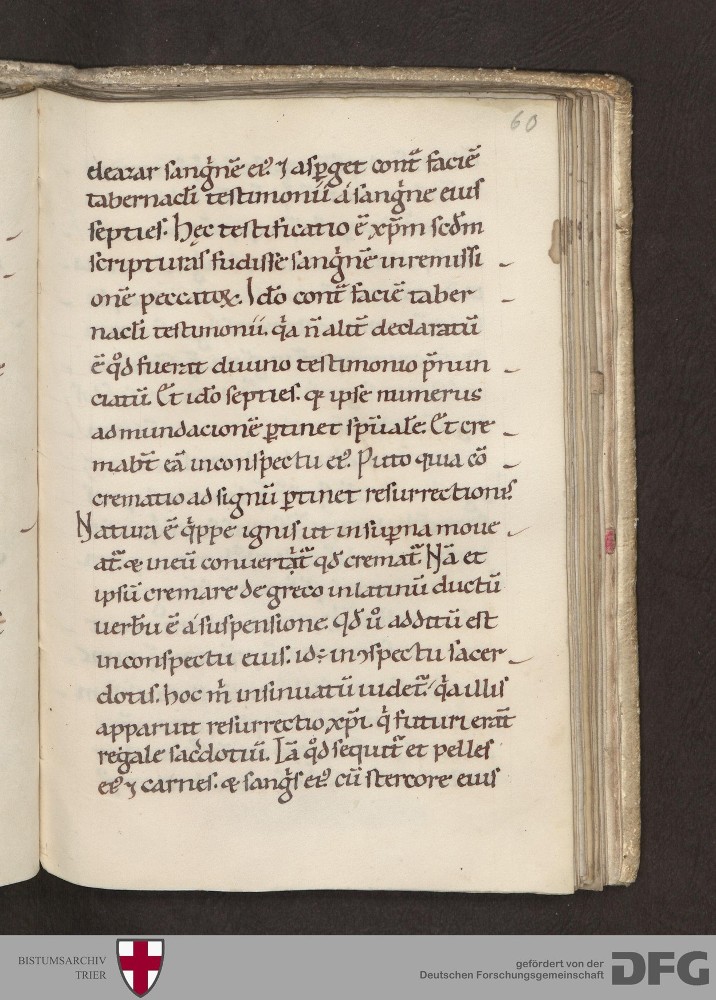 60
eleazar sanǵnē ei᷒. ⁊ asꝑget cont̄ faciē
tabernacl̄i testimonii á sanǵne eius
septies. Hęc testificatio ē xp̄m scd̄m
scripturas fudisse sanǵnē in remissi
onē peccatoꝝ. Id̄o cont̄ faciē taber
nacl̄i testimonii. q́a n̄ alit̄ declaratū
ē q̊d fuerat diuino testimonio p̄nun
ciatū. Et id̄o septies. q̨ ipse numerus
ad mundacionē ꝑtinet sp̄uale. Et cre
mab̄t eā in conspectu ei᷒. Puto quia cō
crematio ad signū ꝑtinet resurrectionis
Natura ē q́ppe ignis ut in suꝑna moue
at᷑. & in eū conuertát᷑ qd̄ cremat᷑. Nā et
ipsū cremare de greco in latinū ductū
uerbū ē á suspensione. Qd̄ ů additū est
in conspectu eius. id ÷ in ↄspectu sacer
dotis. hoc m̄ insinuatū uidet᷑. q́a illis
apparuit resurrectio xp̄i. q́ futuri erāt
regale sac̄dotiū. Iā q̊d sequit᷑ et pelles
ei᷒ ⁊ carnes. & sanǵs ei᷒ cū stercore eius
BISTUMSARCHIV
TRIER
gefördert von der
Deutschen Forschungsgemeinschaft
DFG